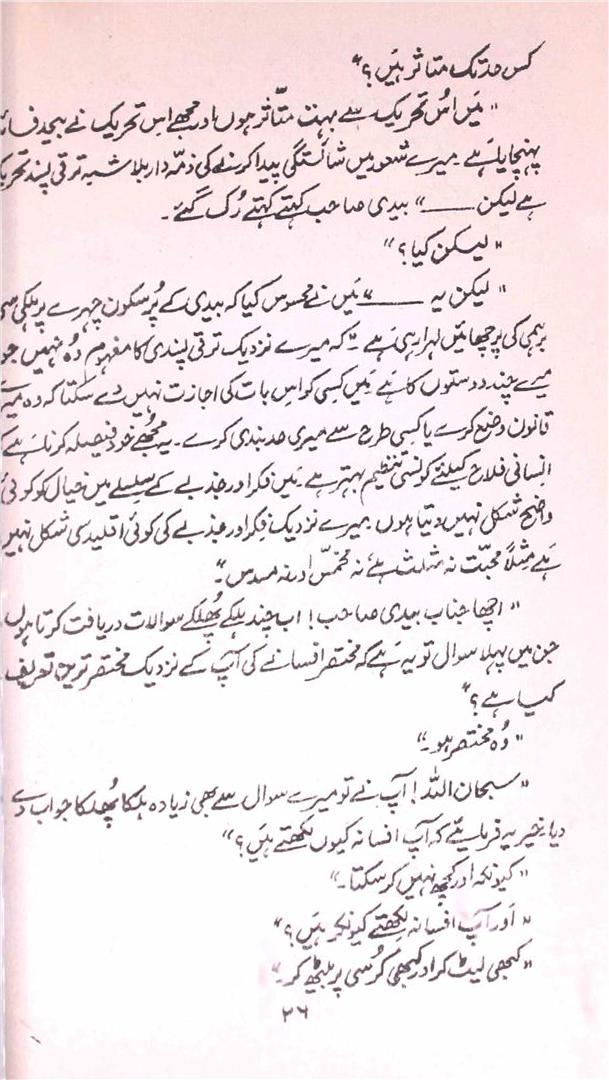 کس حد تک متاثر ہیں؟"
"میں اُس تحریک سے بہت متّاثر ہوں اور مجھے اس تحریک نے بیحد
پہنچایا ہے۔ میرے شعور میں شائستگی پیدا کرنے کی ذمّہ دار بلا شبہ ترقی پسند تحریک
ہے لیکن ــــــ" بیدی صاحب کہتے کہتے رُک گئے۔
"لیکن کیا؟"
"لیکن یہ ــــــ" میں نے محسوس کیا کہ بیدی کے پُر سکون چہرے پر ہلکی سی
برہمی کی پرچھائیں لہرا رہی ہے۔ "کہ میرے نزدیک ترقی پسندی کا مفہوم وُہ نہیں جو
میرے چند دوستوں کا ہے۔ میں کسی کو اس بات کی اجازت نہیں دے سکتا کہ وہ میرے
قانون وضع کرے یا کسی طرح سے میری حد بندی کرے۔ یہ مجُھے خود فیصلہ کرنا ہے کہ
انسانی فلاح کیلئے کونسی تنظیم بہتر ہے۔ میں فکر اور جذبے کے سلسلے میں خیال کو کوئی
واضح شکل نہیں دیتا ہوں۔ میرے نزدیک فکر اور جذبے کی کوئی اقلیدسی شکل نہیں
ہے مثلاً محبّت نہ مثلث ہے نہ مخمّس اور نہ مسدس"۔
"اچھا جناب بیدی صاحب! اب چند ہلکے پُھلکے سوالات دریافت کرتا ہوں
جن میں پہلا سوال تو یہ ہے کہ مختصر افسانے کی آپ کے نزدیک مختصر ترین تعریف
کیا ہے؟"
"وُہ مختصر ہو۔"
"سبحان اللہ! آپ نے تو میرے سوال سے بھی زیادہ ہلکا پُھلکا جواب دے
دیا۔ خیر یہ فرمایئے کہ آپ افسانہ کیوں لکھتے ہیں؟"
"کیونکہ اور کچھ نہیں کر سکتا۔"
"اَور آپ افسانہ لکھتے کیونکر ہیں؟"
"کبھی لیٹ کر اور کبھی کُرسی پر بیٹھ کر۔"
۲۶